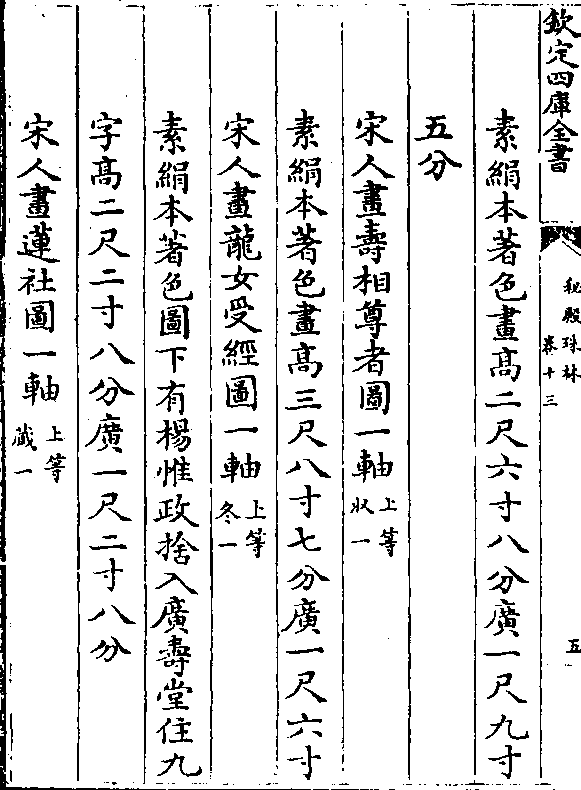 欽定四庫全書
秘殿珠林
卷十三
五
素絹本著色畫高二尺六寸八分廣一尺九寸
五分
宋人畫壽相尊者圖一軸上等
狀一
素絹本著色畫高三尺八寸七分廣一尺六寸
宋人畫龍女受經圖一軸上等
冬一
素絹本著色圖下有楊惟政捨入廣壽堂住九
字高二尺二寸八分廣一尺二寸八分
宋人畫蓮社圖一軸上等
藏一